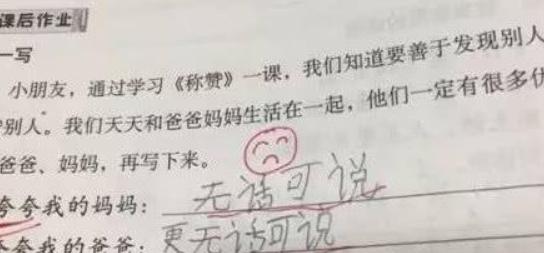 课后作业
一写
小朋友，通过学习《称赞》一课，我们知道要善于发现别人
别人。我们天天和爸爸妈妈生活在一起，他们一定有很多优
爸爸、妈妈，再写下来。
夸夸我的妈妈：无话可说
夸夸我的爸爸：更无话可说